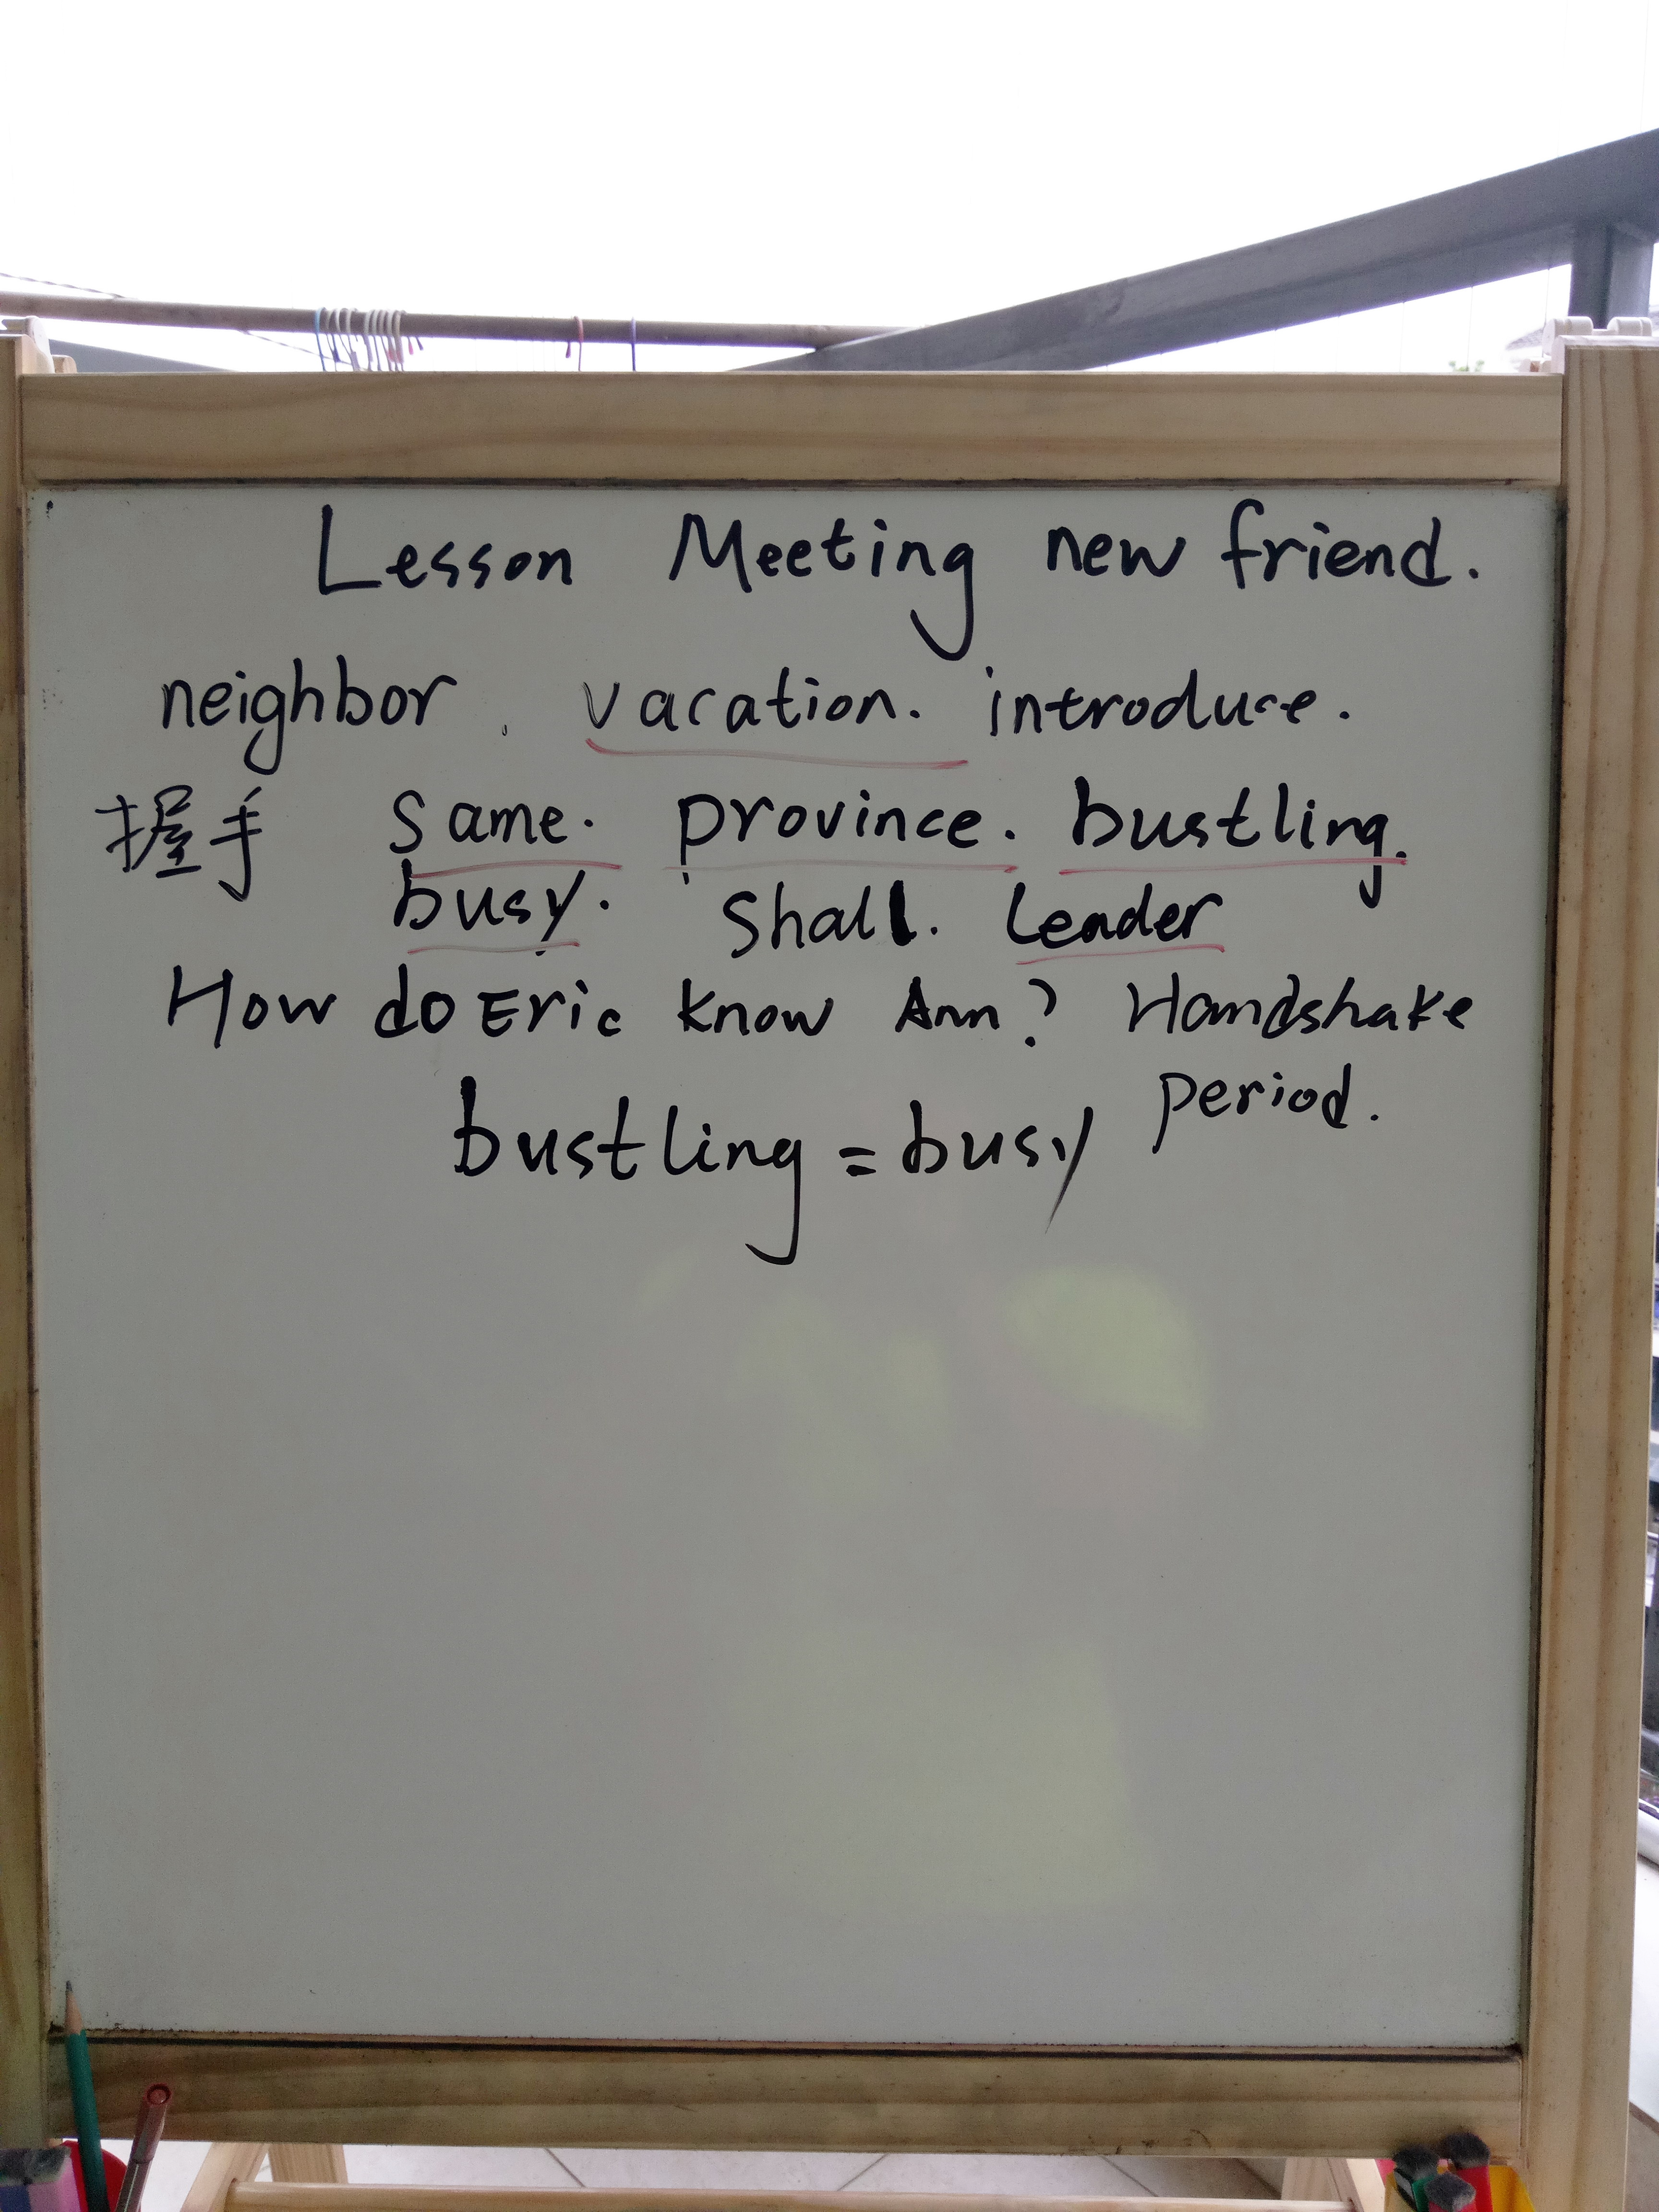 Lesson Meeting new friend.
neighbor. vacation. introduce.
握手 same. province. bustling.
busy. shall. leader
How do Eric know Ann? Handshake
period.
bustling = busy